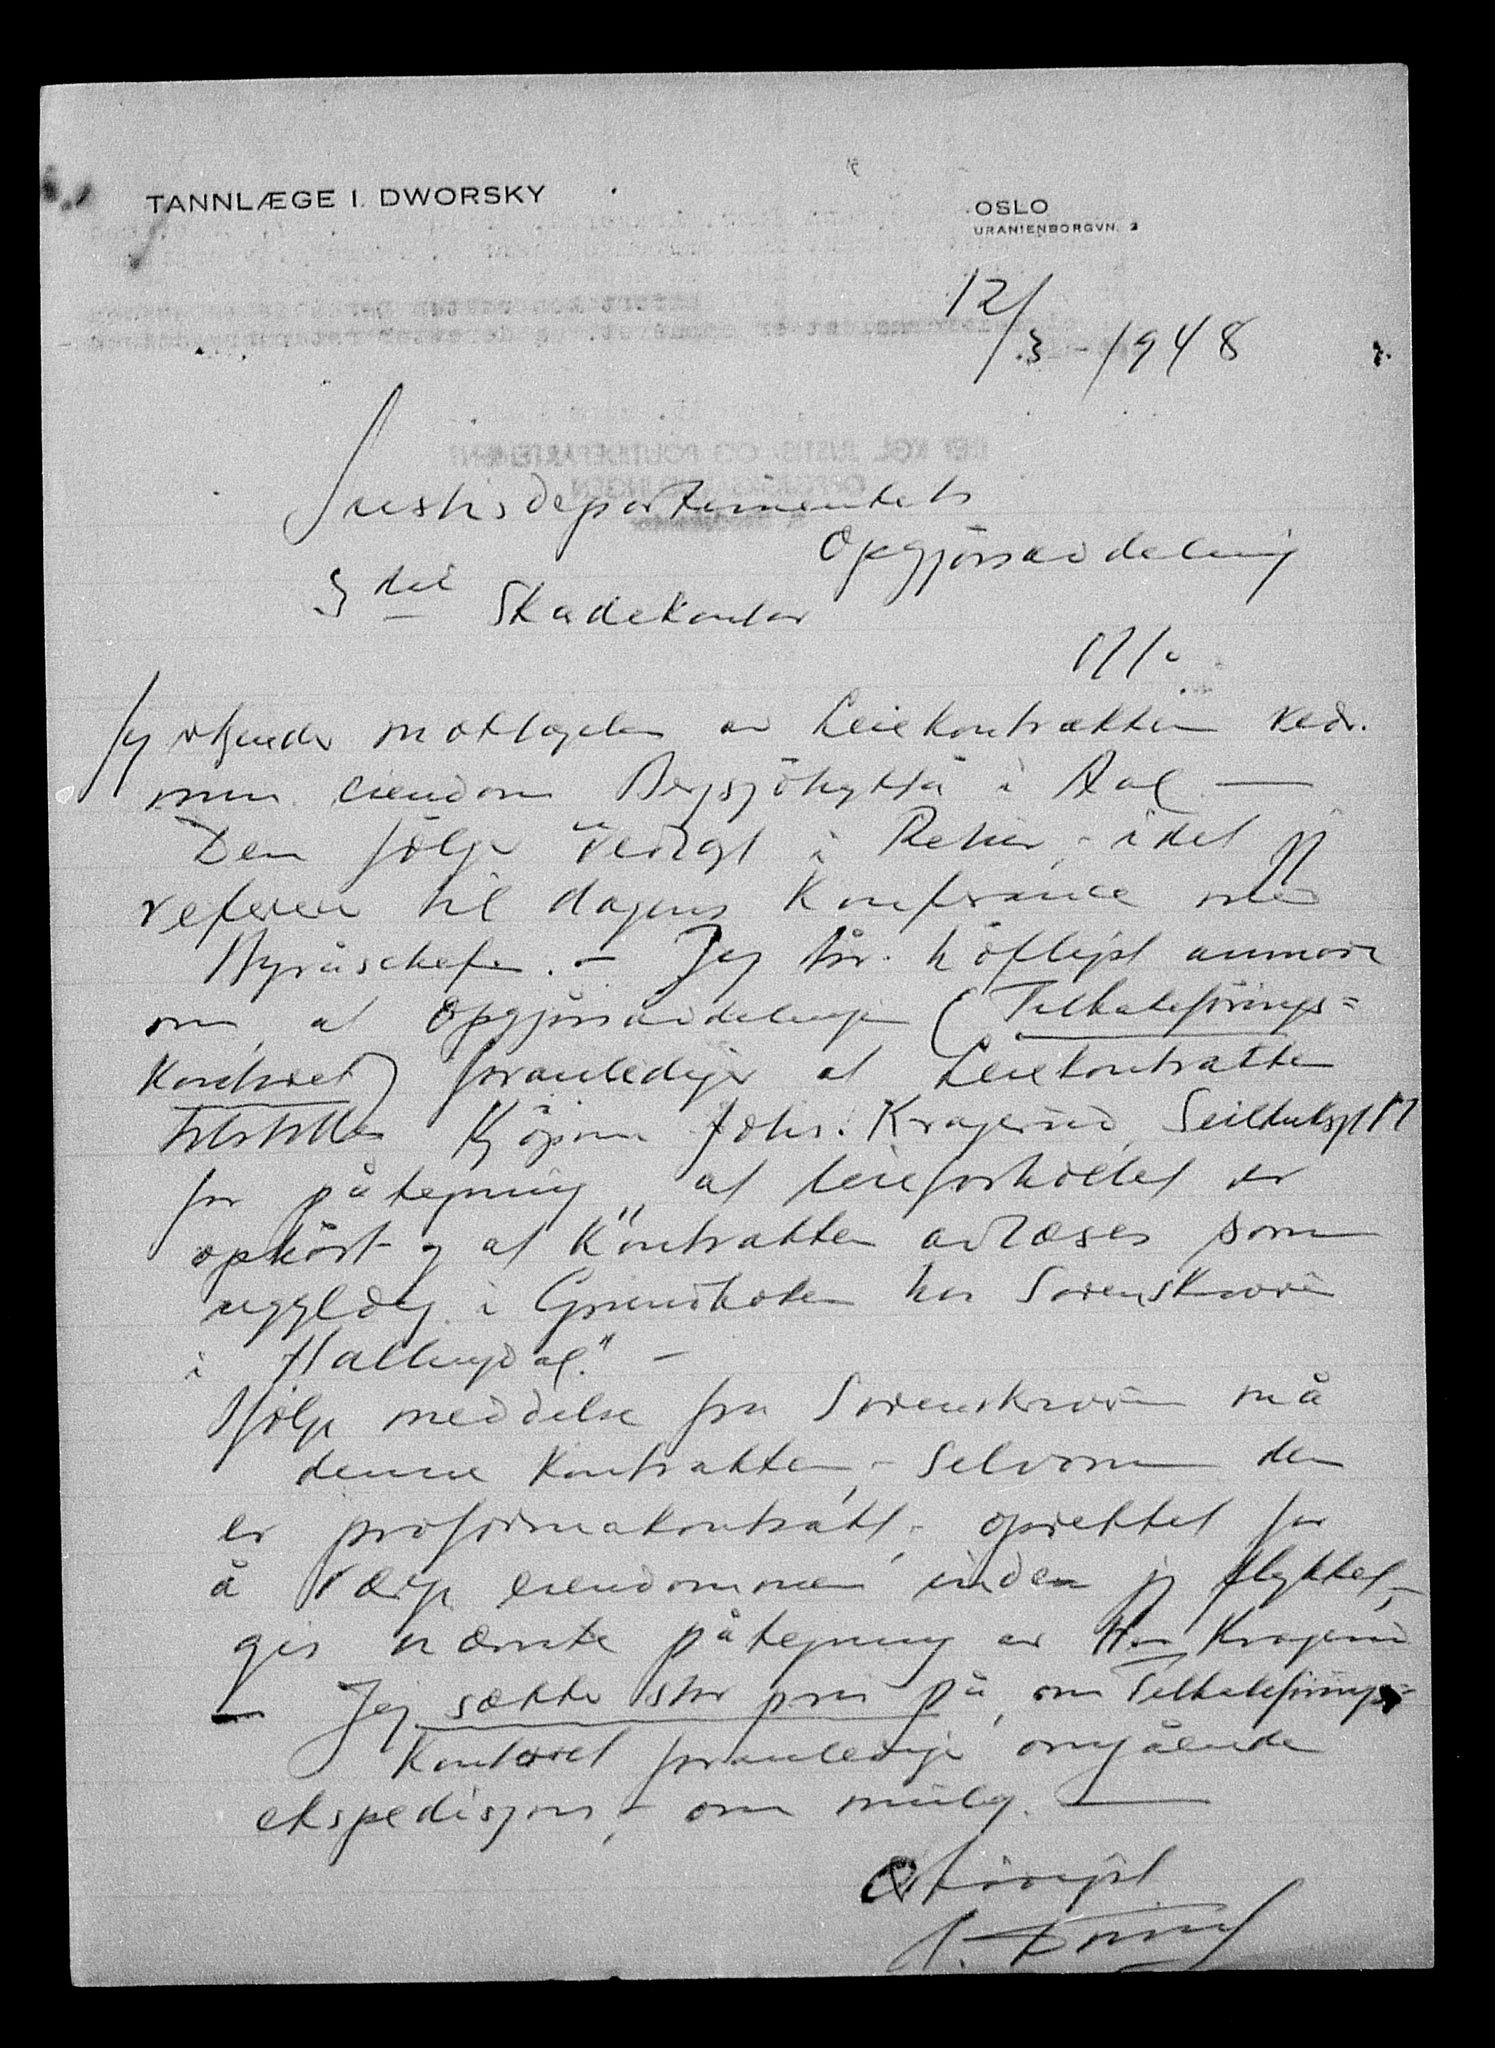 TANNLÆGE I. DWORSKY
OSLO
URANIENBORGVN. 2
12/3-1948
Justisdepartementets
Opgjørsavdeling
Skadekontor
Jeg erkjender mottagelsen av Leiekontrakten vedr.
min eiendom Bergsjöhytta i Aal —
Den følger vedlagt i Retur, - idet jeg
referer til dagens Konferance med
Byråschefen. - Jeg tør høfligst anmode
om, at Opgjørsavdelingen (Tilbakeførings=
Kontoret) foranlediger at Leiekontrakten
tilstilles Kjøpm. Johs. Kragerud, Seilduksgt 17
for påtegning "at leieforholdet er
ophørt og at Kontrakten avlæses som
ugyldig i Grundboken hos Sorenskriveren
i Hallingdal." -
Ifølge meddelse fra Sorenskriveren må
denne Kontrakten, - selvom den
er proformakontrakt, - oprettet for
å verge eiendommen inden jeg flyktet, -
gis nævnte påtegning av Hr. Kragerud
- Jeg sætter stor pris på, om Tilbakeførings=
Kontoret foranlediger omgående
ekspedisjon, - om mulig. —
Ærbødigst
I. Dworsky